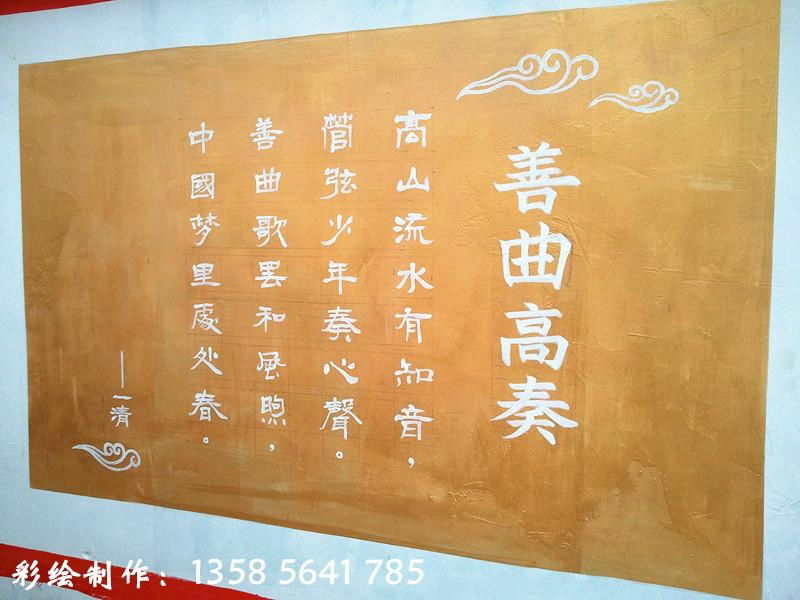 善曲高奏
高山流水有知音，
管弦少年奏心聲。
善曲歌罢和風煦，
中國梦里處处春。
——一清
彩绘制作：135 8 5 6 4 1 785